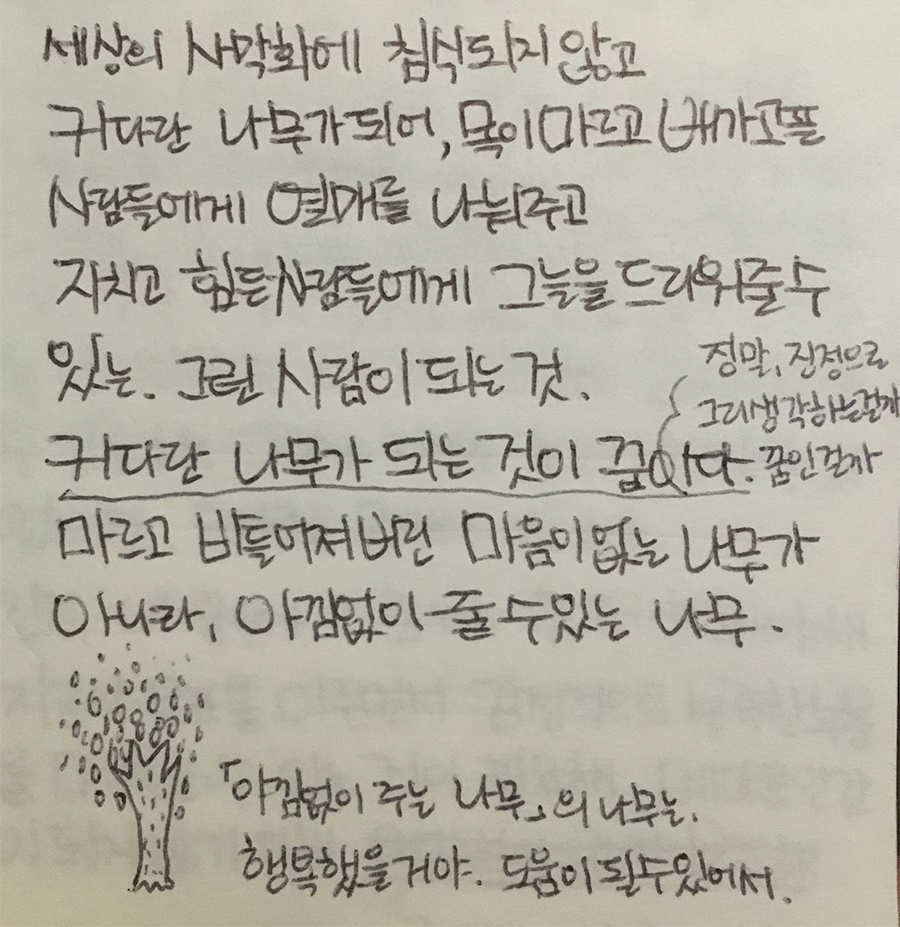 세상의 사막화에 침식되지 않고
커다란 나무가 되어, 목이 마르고 배가 고플
사람들에게 열매를 나눠주고
지치고 힘든 사람들에게 그늘을 드리워줄 수
있는. 그런 사람이 되는 것.
커다란 나무가 되는 것이 꿈이다.
정말, 진정으로
그리 생각하는걸까
꿈인걸까
마르고 비틀어져버린 마음이 없는 나무가
아니라, 아낌없이 줄 수 있는 나무.
「아낌없이 주는 나무」의 나무는.
행복했을거야. 도움이 될 수 있어서.